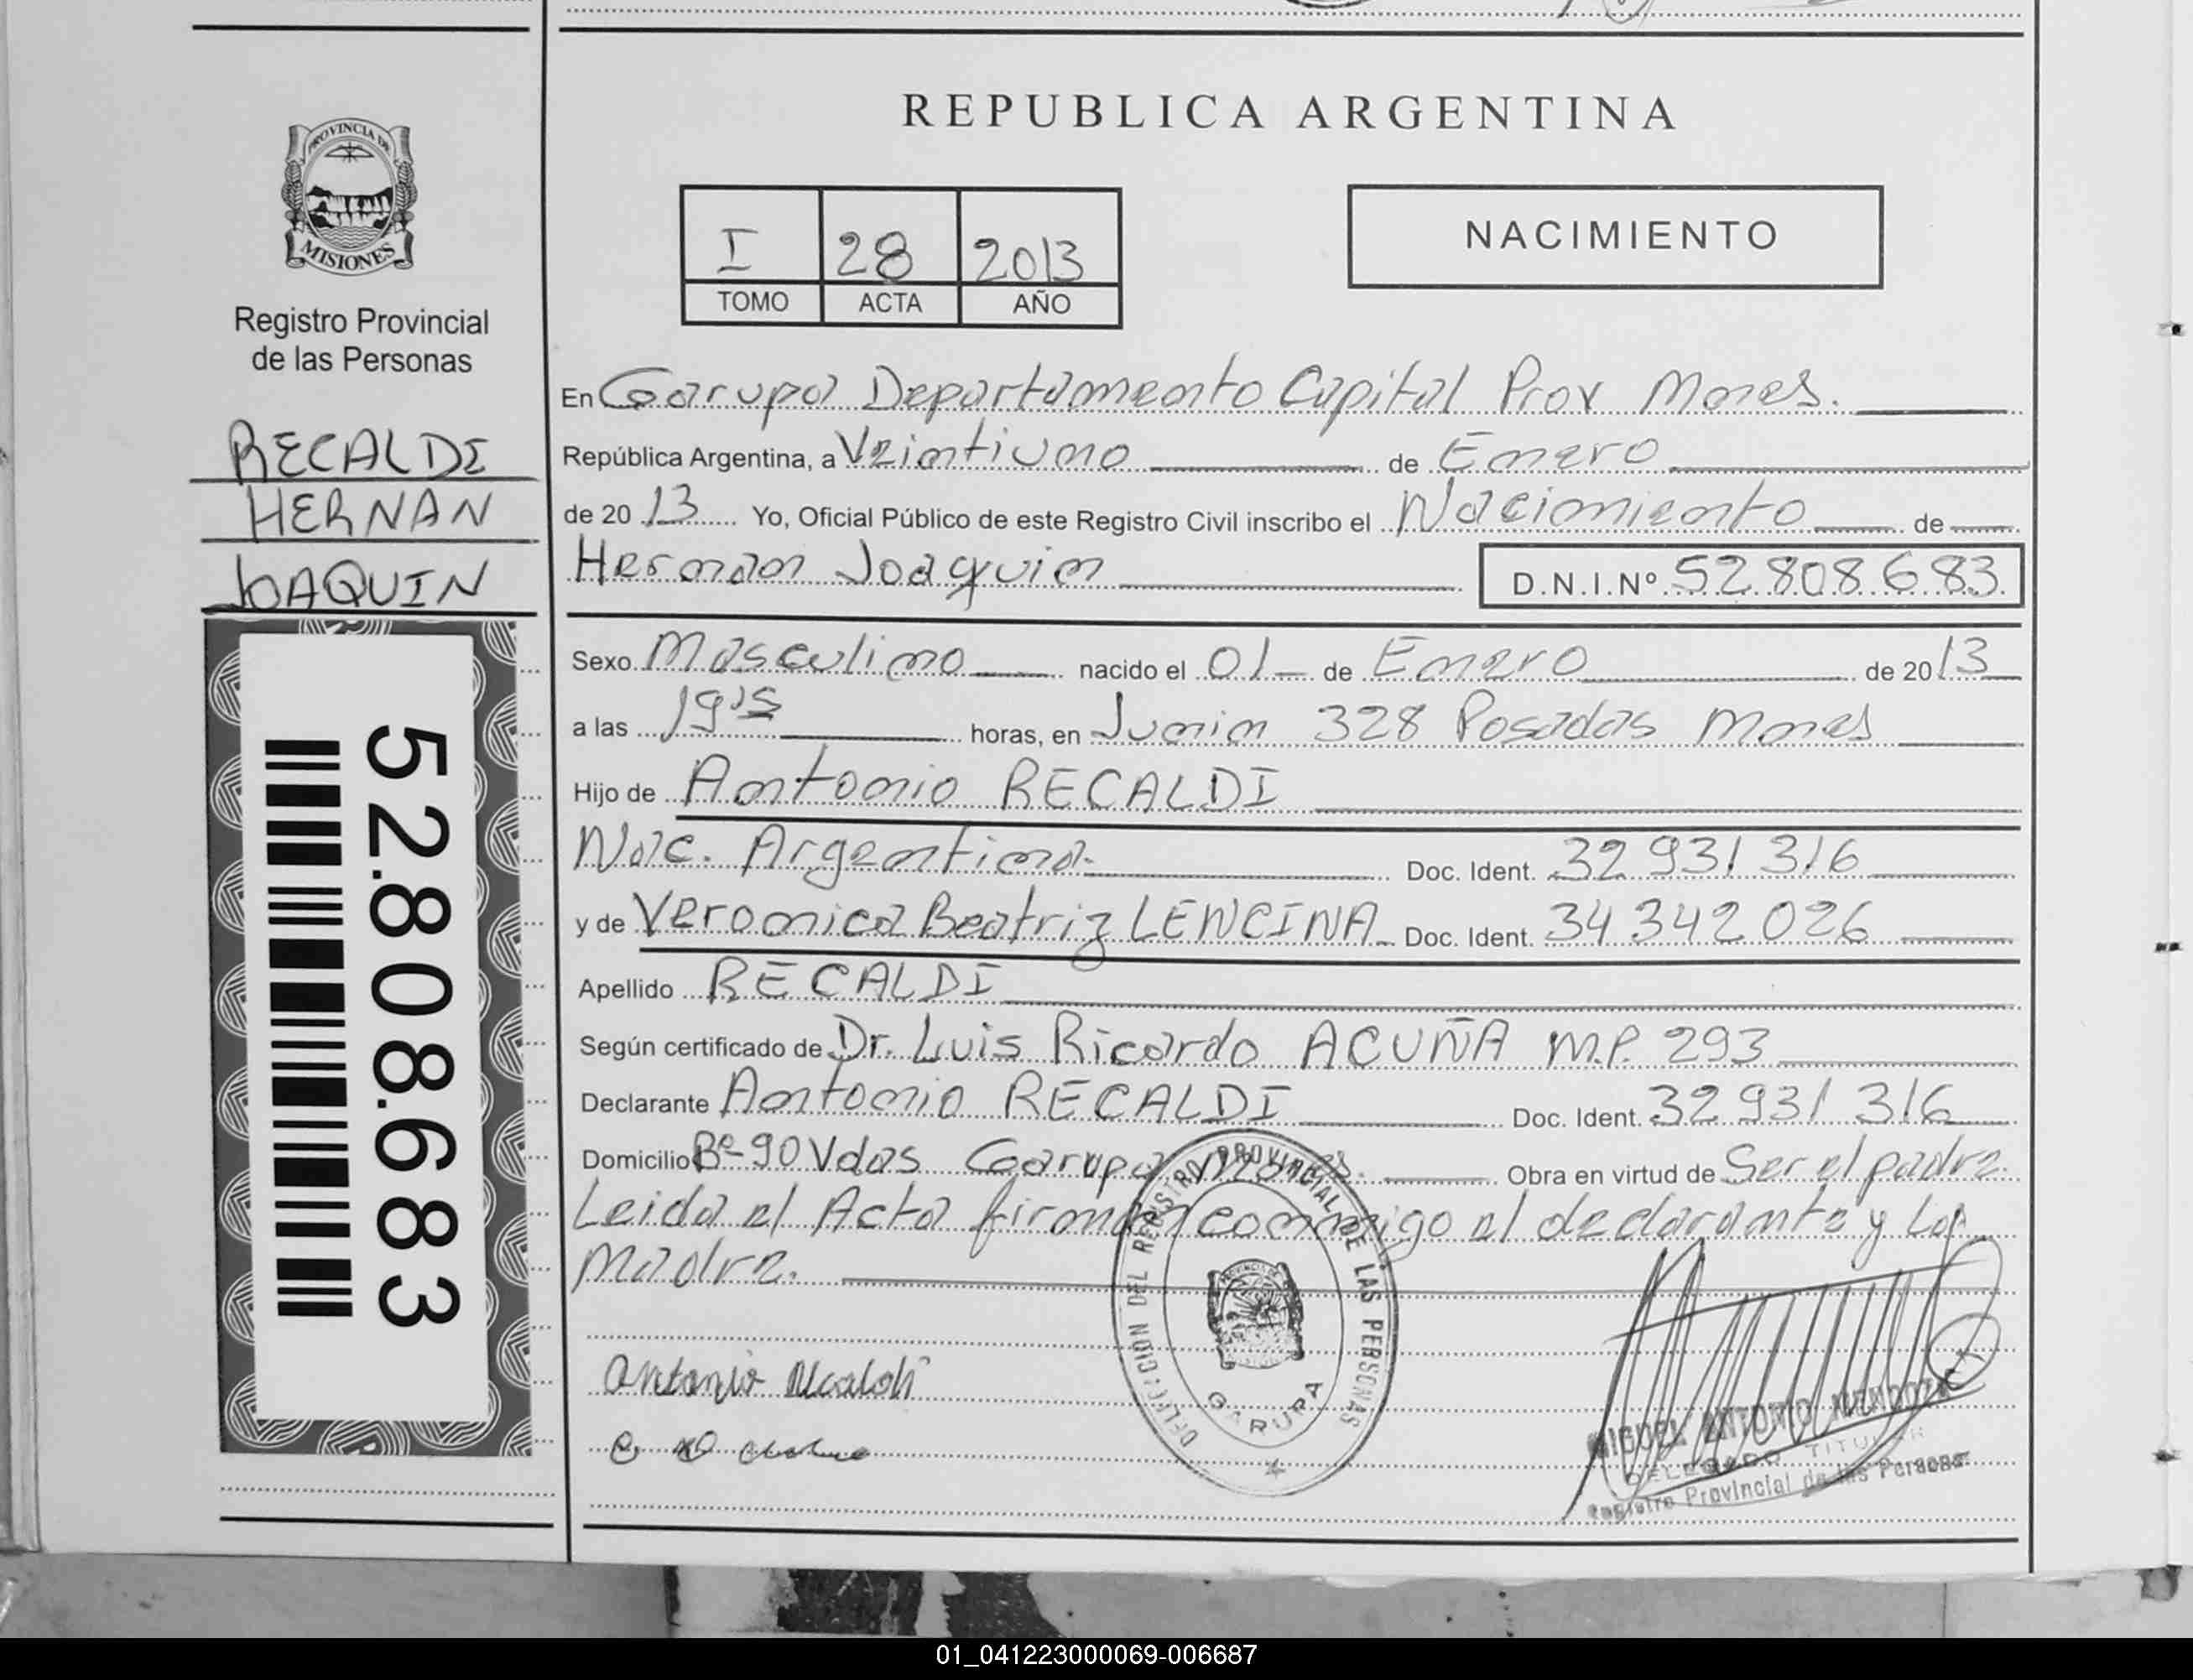 REPUBLICA ARGENTINA
PROVINCIA DE
MISIONES
Registro Provincial
de las Personas
RECALDI
HERNAN
JOAQUIN
52.808.683
I 28 2013
TOMO ACTA AÑO
NACIMIENTO
En Garupa Departamento Capital Prov Mnes.
República Argentina, a Veintiuno de Enero
de 2013 Yo, Oficial Público de este Registro Civil inscribo el Nacimiento de
Hernan Joaquin D.N.I.Nº 52.808.683
Sexo Masculino nacido el 01 de Enero de 2013
a las 19:15 horas, en Junin 328 Posadas Mnes
Hijo de Antonio RECALDI
Nac. Argentina. Doc. Ident. 32 931 316
y de Veronica Beatriz LENCINA Doc. Ident. 34 342 026
Apellido RECALDI
Según certificado de Dr. Luis Ricardo ACUÑA M.P. 293
Declarante Antonio RECALDI Doc. Ident. 32 931 316
Domicilio Bº 90 Vdas Garupa Mnes. Obra en virtud de Ser el padre.
Leida el Acta firman conmigo el declarante y La
Madre.
DELEGACION DEL REGISTRO PROVINCIAL DE LAS PERSONAS
GARUPA
Antonio Recaldi
MIGUEL ANTONIO MENDOZA
DELEGADO TITULAR
Registro Provincial de las Personas
01_041223000069-006687